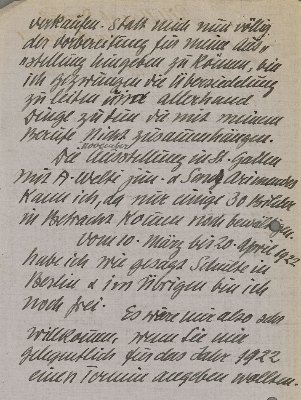 verkaufen. Statt mich nun völlig
der Vorbereitung für meine Aus=
stellung hingeben zu können, bin
ich gezwungen die Übersiedelung
zu leiten und allerhand
Dinge zu tun die mit meinem
Berufe nicht zusammenhängen.
november
Die Ausstellung in St. Gallen
mit A. Welti jun.
kann ich, da nur einige 30 Bilder
in Betracht kommen noch bewältigen.
Vom 10. März bis 20. April 1922
habe ich wie gesagt Schulte in
Berlin & im Übrigen bin ich
noch frei. Es wäre mir also sehr
willkommen, wenn Sie mir
gelegentlich für das Jahr 1922
einen Termin angeben wollten.